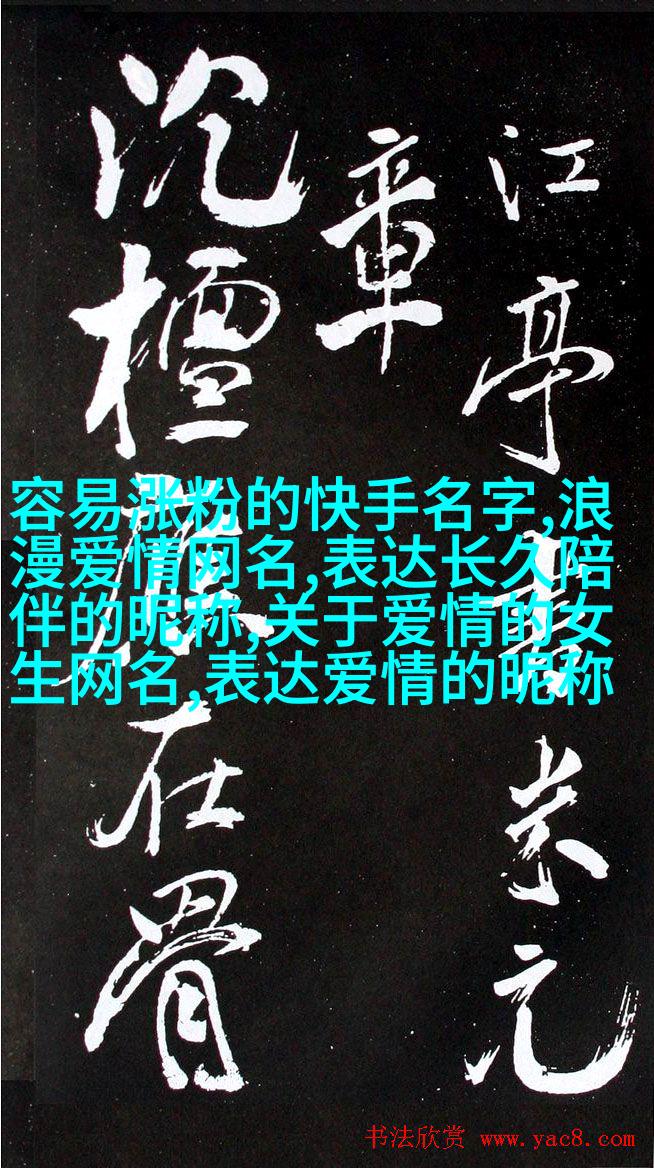 江亭書米元
章
沉檀在骨
容易涨粉的快手名字,浪
漫爱情网名,表达长久陪
伴的昵称,关于爱情的女
生网名,表达爱情的昵称
书法欣赏 www.yac8.com